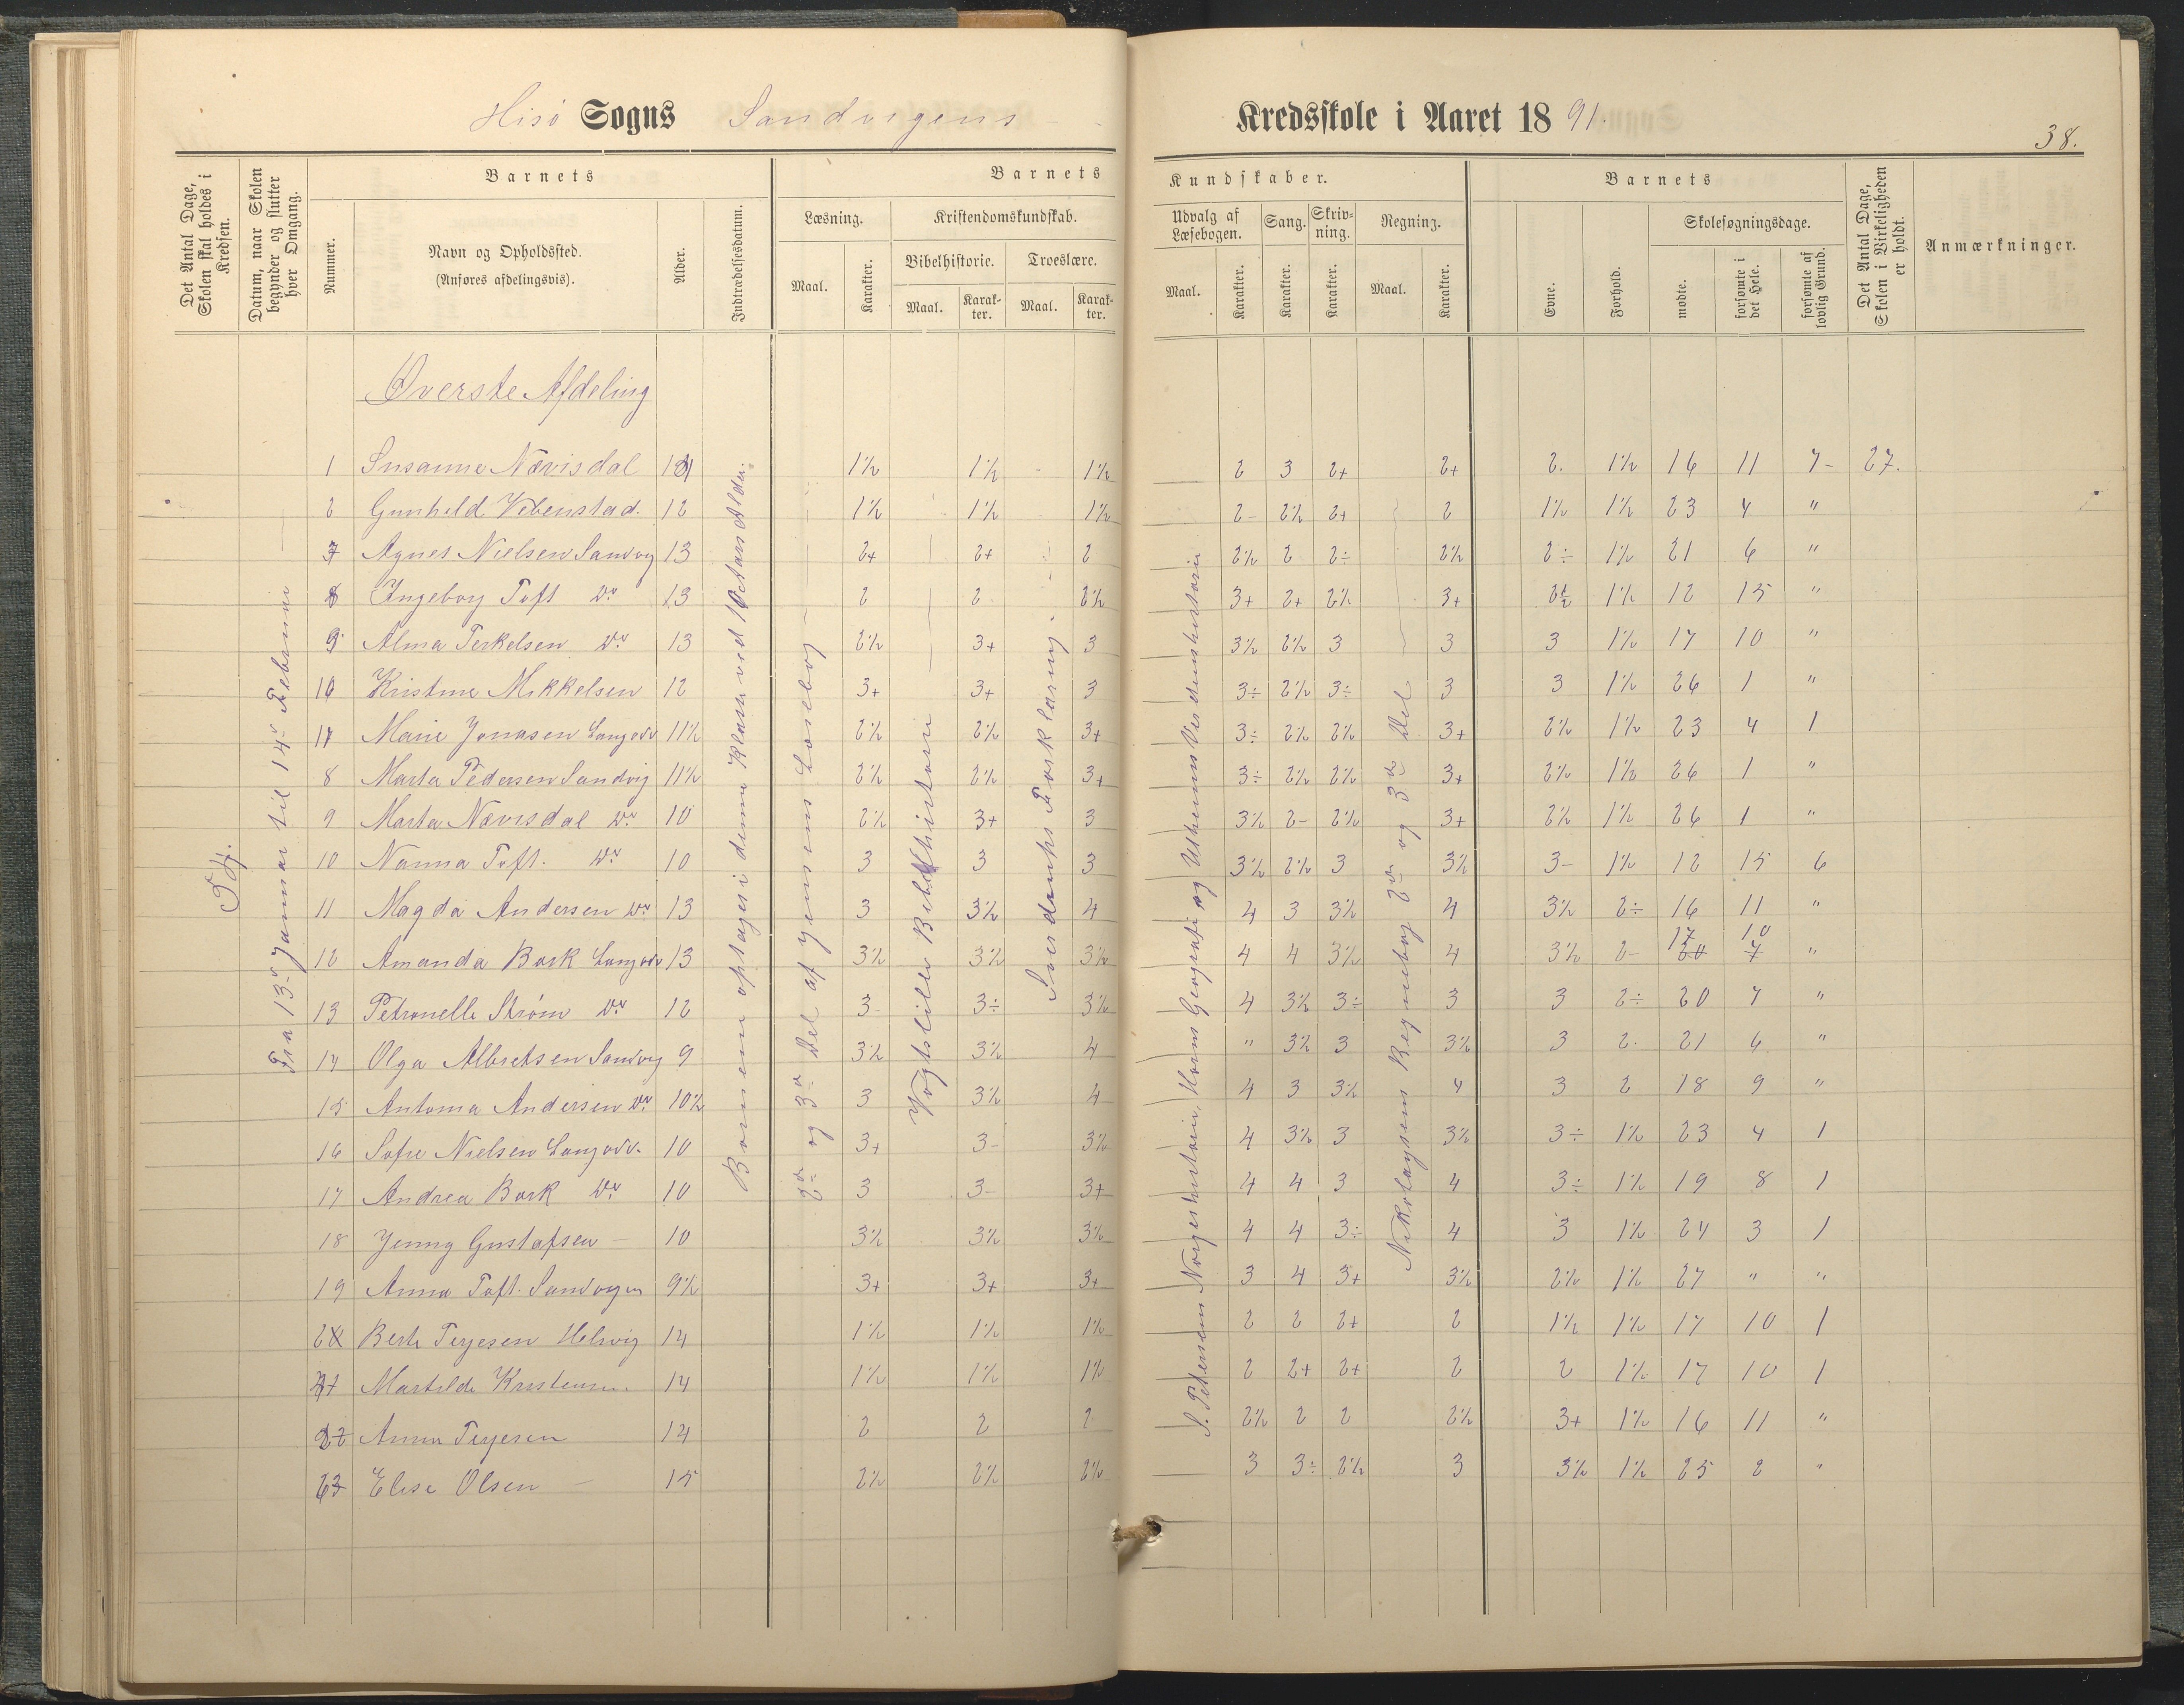 Hisö Sogns Sandvigens
Kredsskole i Aaret 1891.
38.
Det Antal Dage, Skolen skal holdes i Kredsen.
Datum, naar Skolen begynder og slutter hver Omgang.
Barnets
Nummer.
Navn og Opholdssted.
(Anføres afdelingsvis).
Alder.
Indtrædelsesdatum.
Barnets
Læsning.
Maal.
Karakter.
Kristendomskundskab.
Bibelhistorie.
Maal.
Karak-
ter.
Troeslære.
Maal.
Karak-
ter.
Kundskaber.
Udvalg af
Læsebogen.
Maal.
Karakter.
Sang.
Karakter.
Skriv-
ning.
Karakter.
Regning.
Maal.
Karakter.
Barnets
Evne.
Forhold.
Skolesøgningsdage.
mødte.
forsømte i det Hele.
forsømte af lovlig Grund.
Det Antal Dage, Skolen i Virkeligheden er holdt.
Anmærkninger.
Øverste Afdeling
54.
Fra 13de Januar til 14de Februar
Børnene optages i denne Klasse ved 10 Aars Alder.
2den og 3die Del af Jensens Læsebog
Vogts lille Bibelhistorie
Sverdrups Forklaring.
S. Petersens Norgeshistorie, Horns Geografi og Uthenns Verdenshistorie
Nikolaysens Regnebog 2den og 3die Del
1 Susanne Nævisdal 1½ 1½ 1½ 2 3 2+ 2+ 2. 1½ 16 11 7 27.
2 Gunhild Vebenstad. 12 1½ 1½ 1½ 2- 2½ 2+ 2 1½ 1½ 23 4 "
Agnes Nielsen Sandvig 13 2+ 2+ 2 2½ 2 2÷ 2½ 2÷ 1½ 21 6 "
Ingeborg Toft Do 13 2 2 2½ 3+ 2+ 2½ 3+ 2½ 1½ 12 15 "
Alma Terkelsen Do 13 2½ 3+ 3 3½ 2½ 3 3 3 1½ 17 10 "
Kristine Mikkelsen 12 3+ 3+ 3 3÷ 2½ 3÷ 3 3 1½ 26 1 "
Marie Jonasen 11½ 2½ 2½ 3+ 3÷ 2½ 2½ 3+ 2½ 1½ 23 4 1
8 Marta Pedersen Sandvig 11½ 2½ 2½ 3+ 3÷ 2½ 2½ 3+ 2½ 1½ 26 1 "
9 Marta Nævisdal Do 10 2½ 3+ 3 3½ 2- 2½ 3+ 2½ 1½ 26 1 "
10 Nanna Toft. Do 10 3 3 3 3½ 2½ 3 3½ 3- 1½ 12 15 6
11 Magda Andersen Do 13 3 3½ 4 4 3 3½ 4 3½ 2÷ 16 11 "
12 Amanda Bork 13 3½ 3½ 3½ 4 4 3½ 4 3½ 2- 17 20 10 7 "
13 Petronelle Strøm Do 12 3- 3÷ 3½ 4 3½ 3÷ 3 3 2÷ 20 7 "
14 Olga Albretsen Sandvig 9 3½ 3½ 4 " 3½ 3 3½ 3 2. 21 6 "
15 Antonia Andersen Do 10½ 3 3½ 4 4 3 3½ 4 3 2 18 9 "
16 Sofie Nielsen 10 3+ 3- 3½ 4 3½ 3 3½ 3÷ 1½ 23 4 1
17 Andrea Bork Do 10 3 3- 3+ 4 4 3 4 3÷ 1½ 19 8 1
18 Jenny Gustafsen 10 3½ 3½ 3½ 4 4 3÷ 4 3 1½ 24 3 1
19 Anna Toft. Sandvigen 9½ 3+ 3+ 3+ 3 4 3+ 3½ 2½ 1½ 27 " "
Berte Terjesen Helsvig 14 1½ 1½ 1½ 2 2 2+ 2 1½ 1½ 17 10 1
Martilde Kristensen. 14 1½ 1½ 1½ 2 2+ 2+ 2 2 1½ 17 10 1
22 Anna Terjesen 14 2 2 2 2½ 2 2 2½ 3+ 1½ 16 11 "
23 Elise Olsen 15 2½ 2½ 2½ 3 3÷ 2½ 3 3½ 1½ 25 2 "